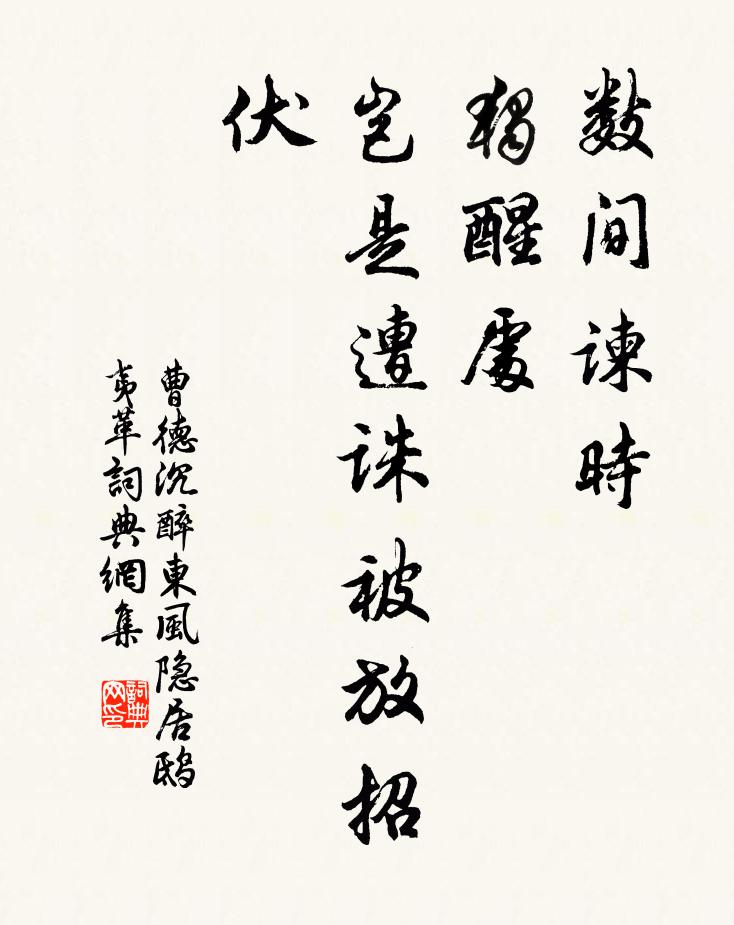 数間諫時
獨醒處
豈是遭誅被放招
伏
曹德沉醉東風隐居鴟
夷革詞典網集
詞典
网印